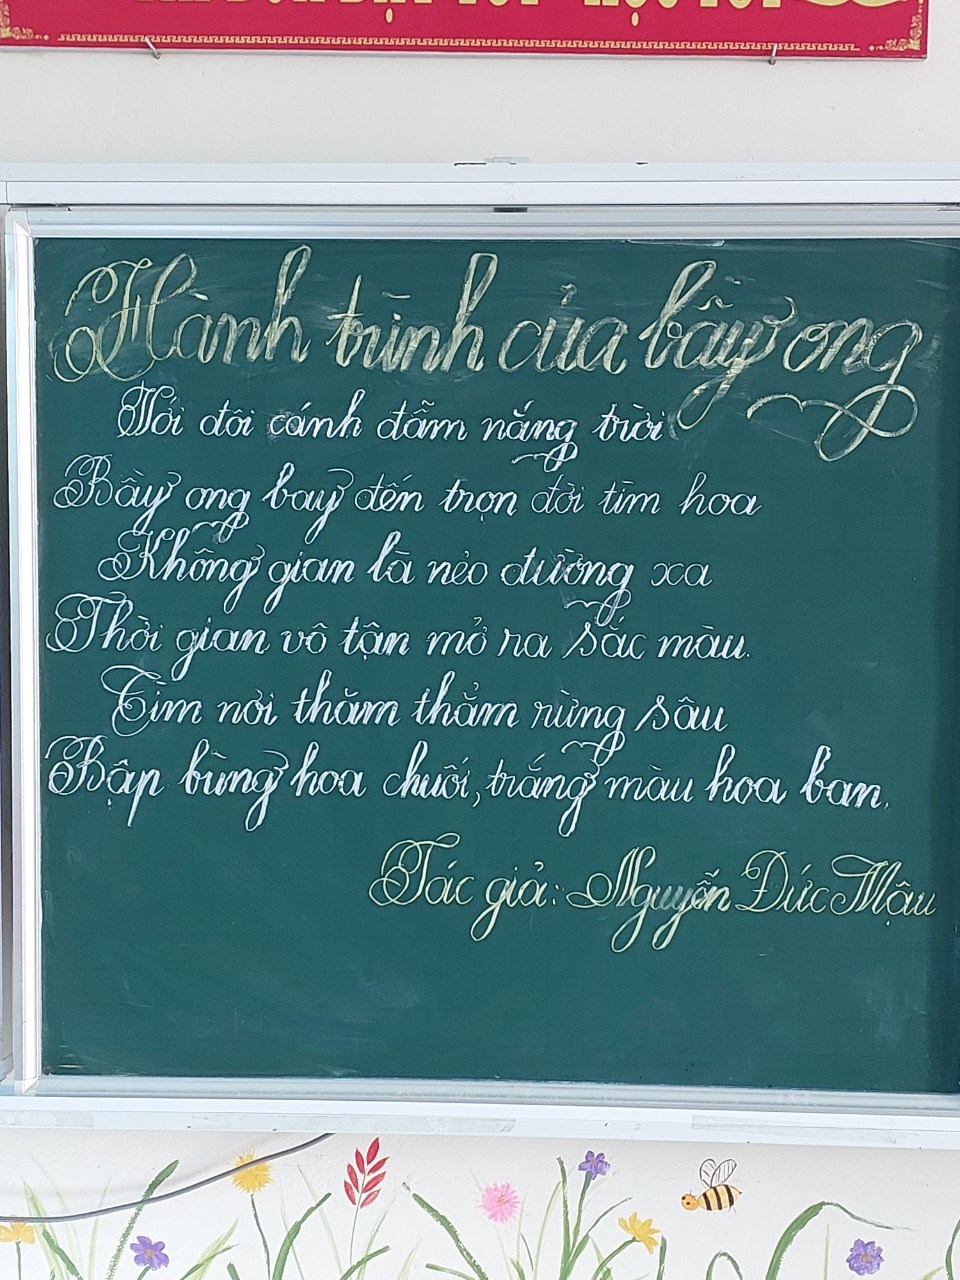 DẠY TỐT - HỌC TỐT
Hành trình của bầy ong
Với đôi cánh đẫm nắng trời
Bầy ong bay đến trọn đời tìm hoa
Không gian là nẻo đường xa
Thời gian vô tận mở ra sắc màu.
Tìm nơi thăm thẳm rừng sâu
Bập bùng hoa chuối, trắng màu hoa ban.
Tác giả: Nguyễn Đức Mậu